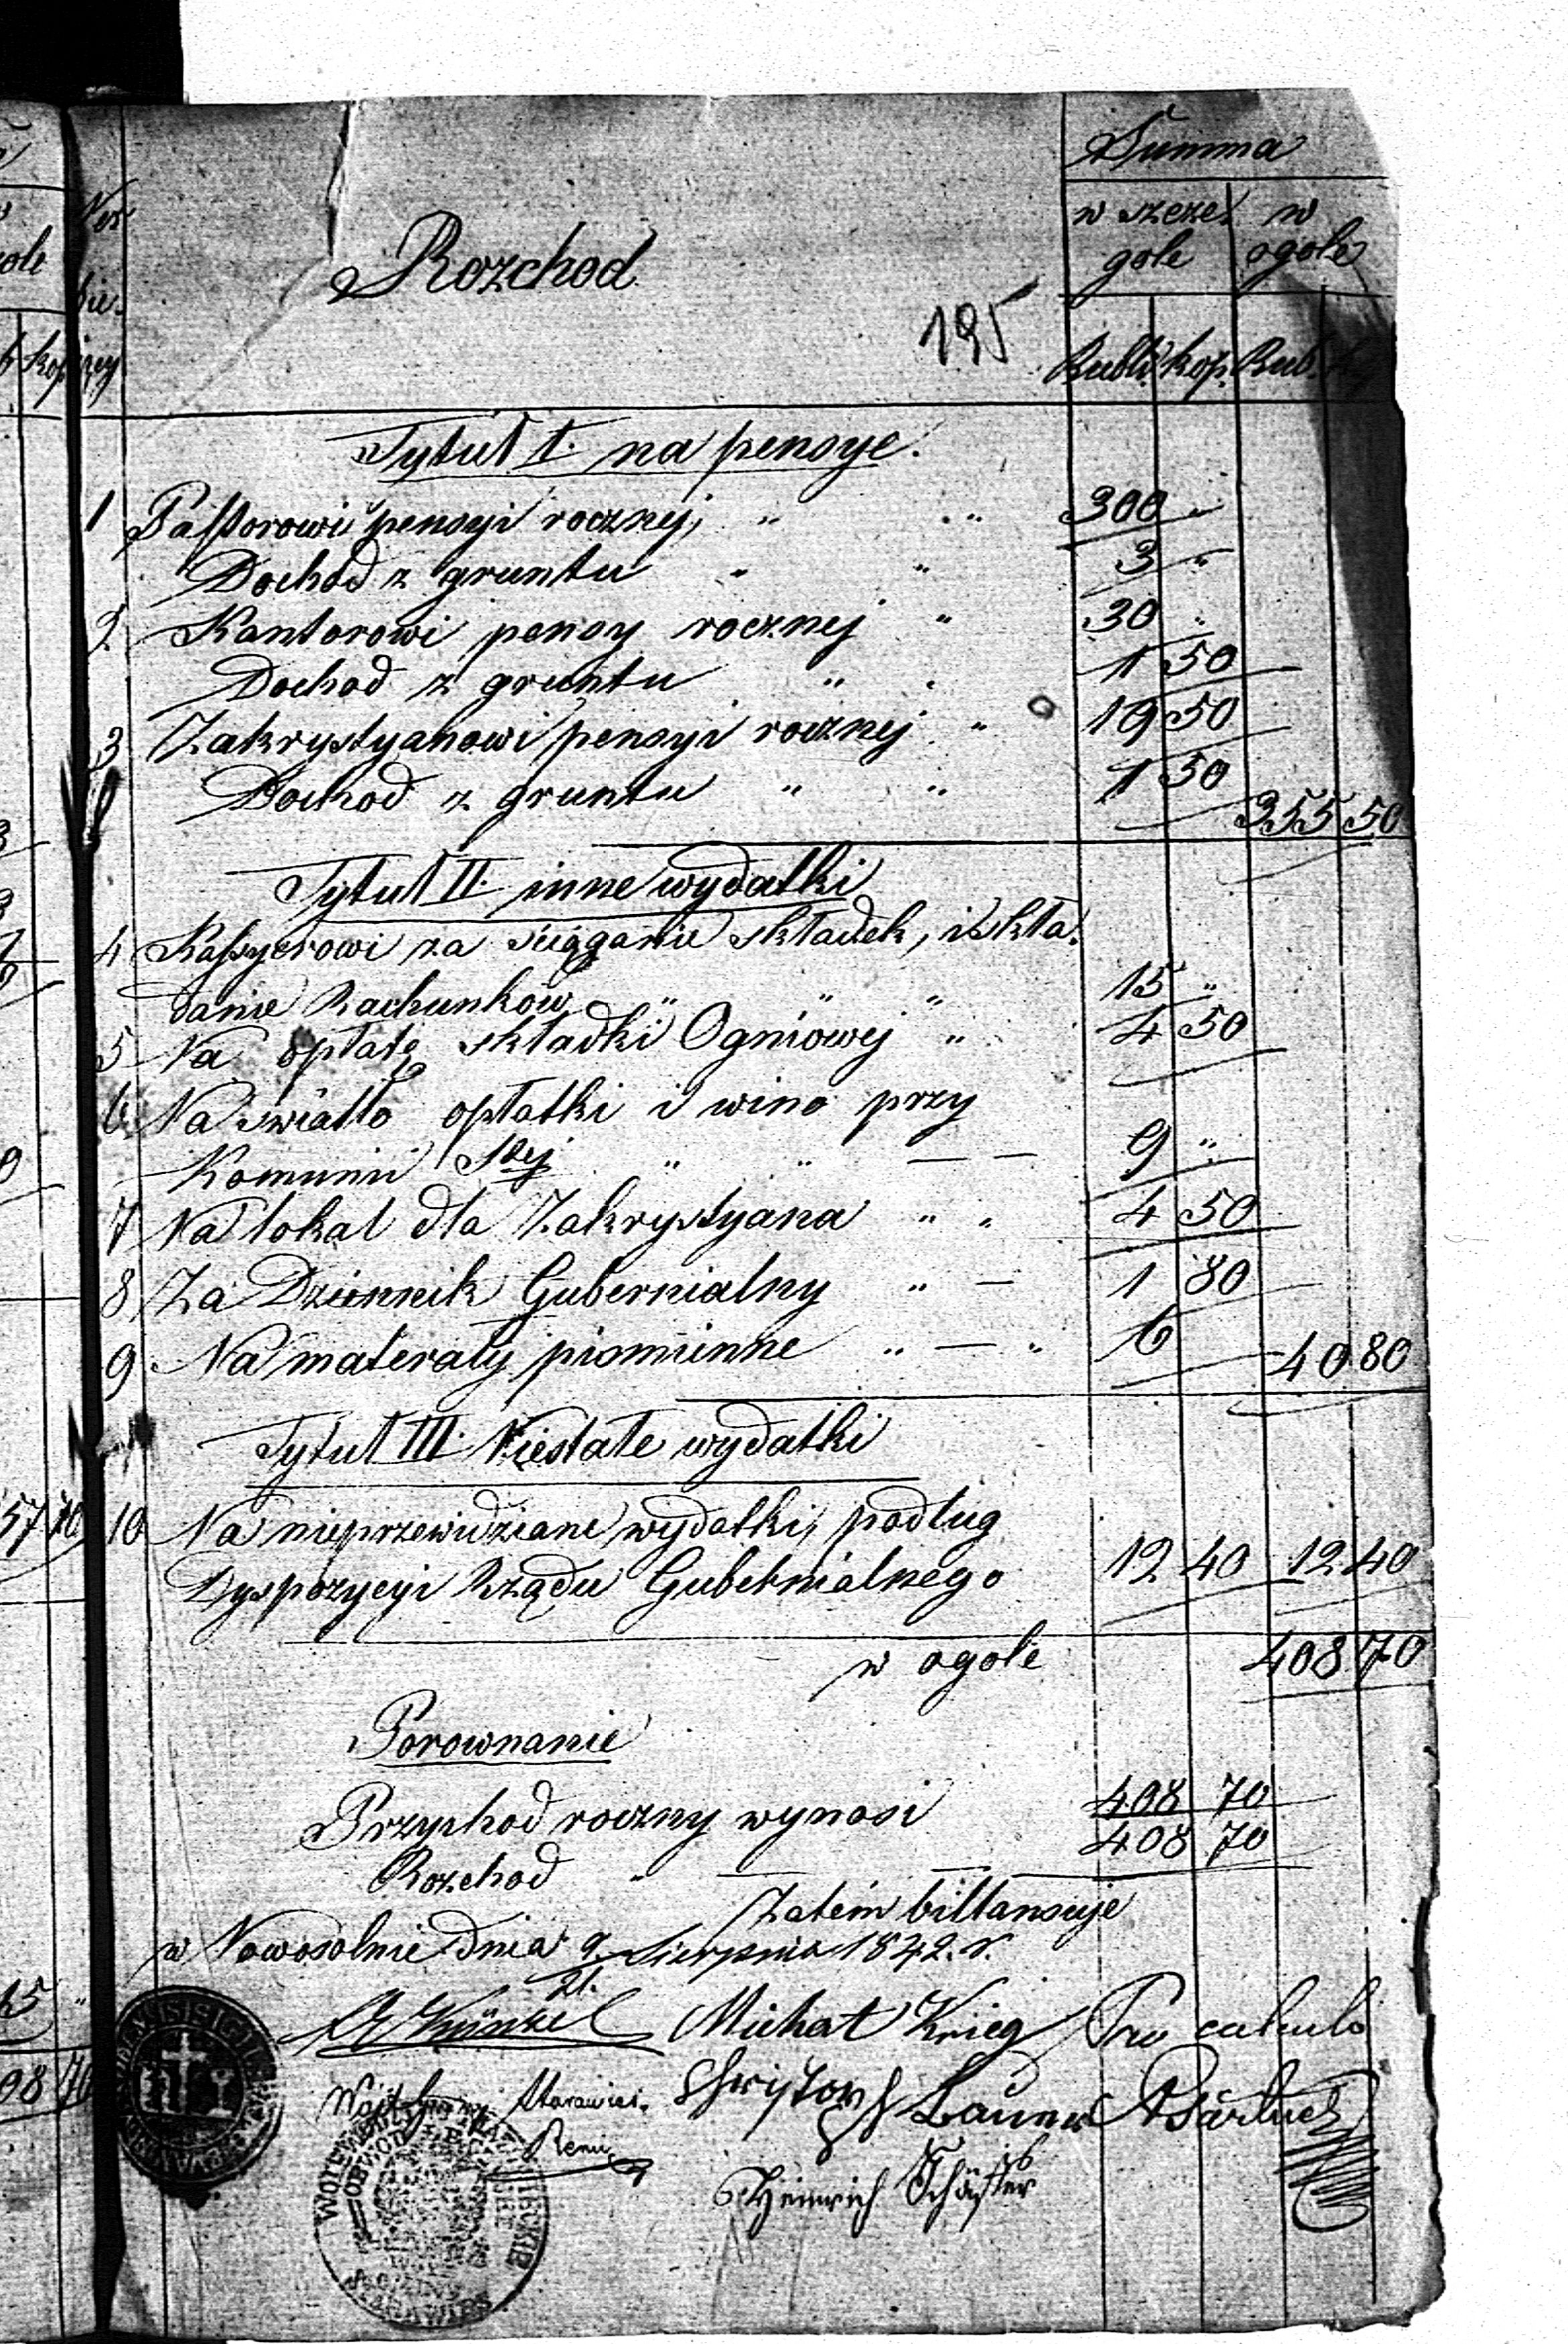 Summa
w szcze w
Rozchod
gole ogole
195
Rubli kop. Rub.
Tytuł I. na pensye.
1 Pastorowi pensyi rocznej " " 300 "
Dochod z gruntu " " 3 "
2 Kantorowi pensy rocznej " 30 "
Dochod z gruntu " . 1 50
3 Zakrystyanowi pensyi rocznej " 19 50
Dochod z gruntu " " 1 50
355 50
Tytuł II. inne wydatki
4 Kassyerowi za sciąganie składek, i skła-
danie Rachunkow " " " 15 "
5 Na opłatę składki Ogniowej " 4 50
6 Na swiatło opłatki i wino przy
Komunii Stej " " — — 9 "
7 Na lokal dla Zakrystyana " " 4 50
8 Za Dziennik Gubernialny " — 1 80
9 Na materały pismienne " — " 6 40 80
Tytuł III. Niestałe wydatki
10 Na nieprzewidziane wydatki, podług
Dyspozycyi Rządu Gubernialnego 12 40 12 40
w ogole 408 70
Porownanie
Przychod roczny wynosi 408 70
Rozchod " — 408 70
Zatem billansuje
w Nowosolnie dnia 9/21. Sierpnia 1842. r.
Michał Krieg Pro calculo
Christoph Bauer
Heinrich Schäffer